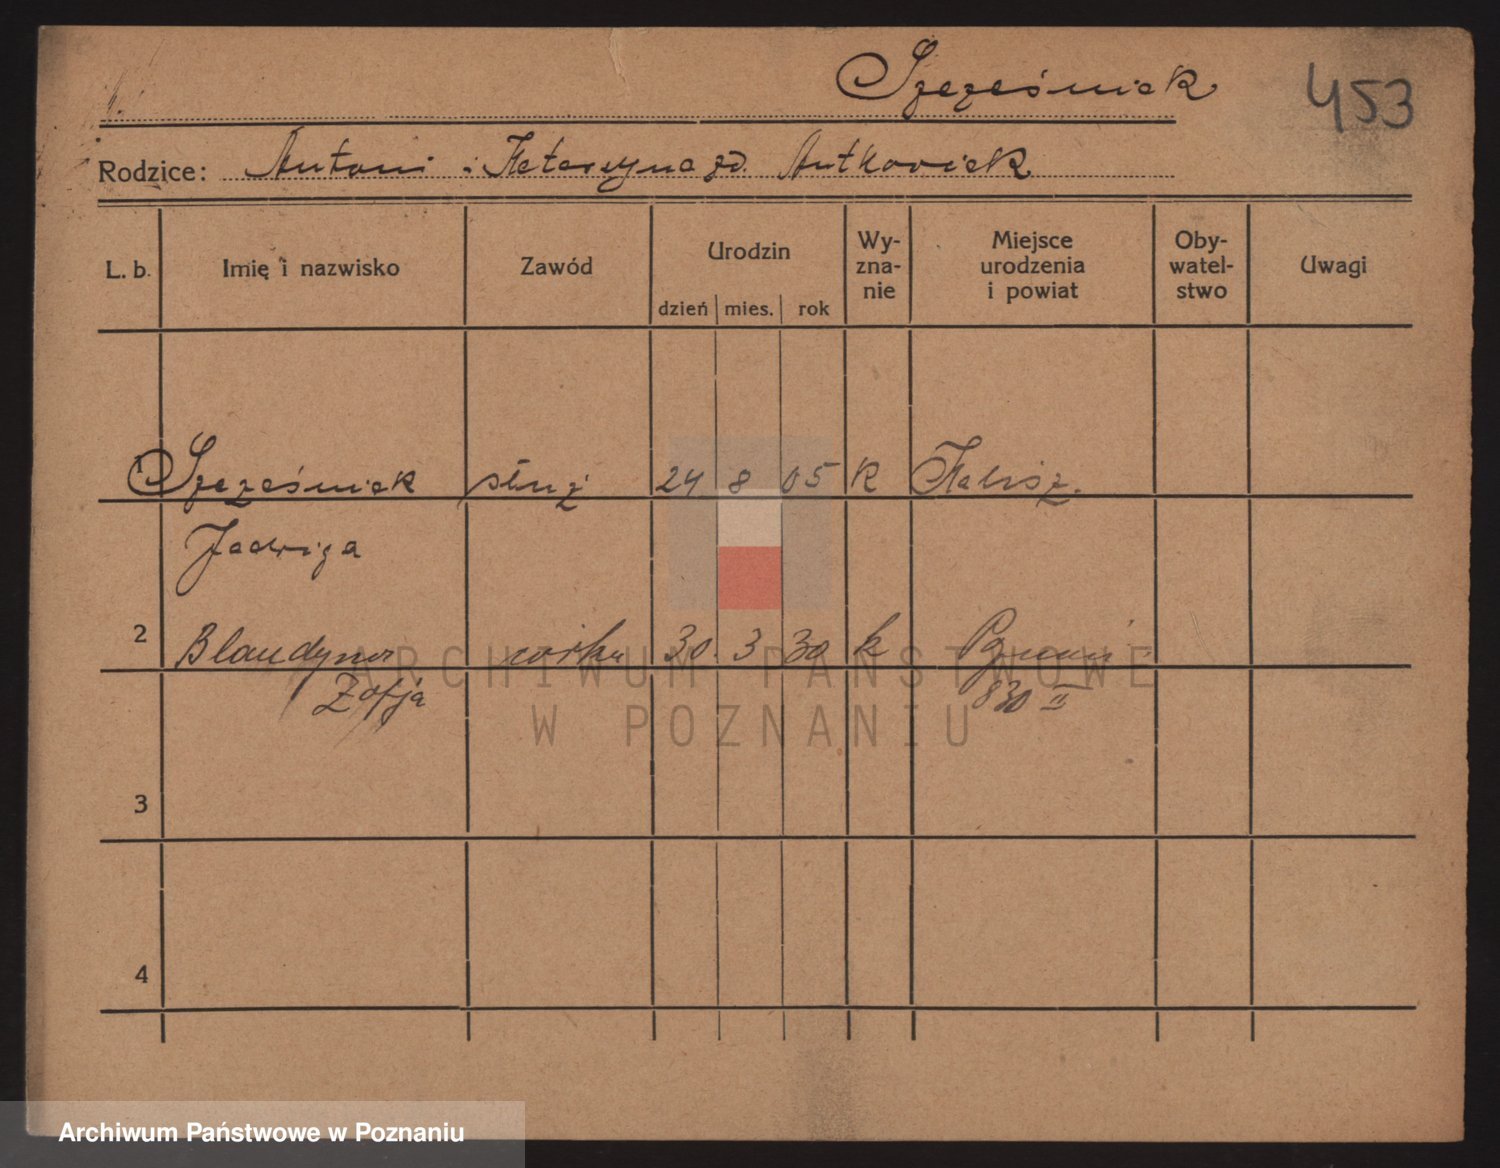 Szcześniak
453
Rodzice: Antoni i Katarzyna zd. Antkowiak
L. b. Imię i nazwisko Zawód Urodzin Wy-zna-nie Miejsce urodzenia i powiat Oby-watel-stwo Uwagi
dzień mies. rok
1 Szcześniak służ 24 8 05 K Kalisz.
Jadwiga
2 Blandyna córka 30. 3 30 k Poznań
Zofja 830 II
3
4
ARCHIWUM PAŃSTWOWE
W POZNANIU
Archiwum Państwowe w Poznaniu